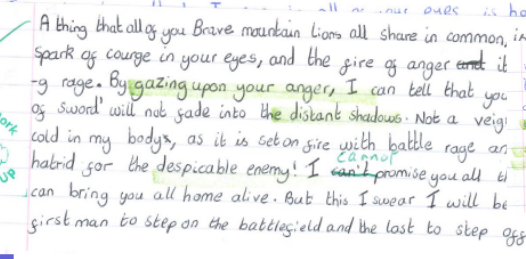 is
A thing that all of you Brave mountain lions all share in common, in
spark of courge in your eyes, and the fire of anger and it
-g rage. By gazing upon your anger, I can tell that you
of sword' will not fade into the distant shadows. Not a veig
cold in my body's, as it is set on fire with battle rage an
hatrid for the despicable enemy! I can't cannot promise you all
can bring you all home alive. But this I swear I will be
first man to step on the battlefield and the last to step off